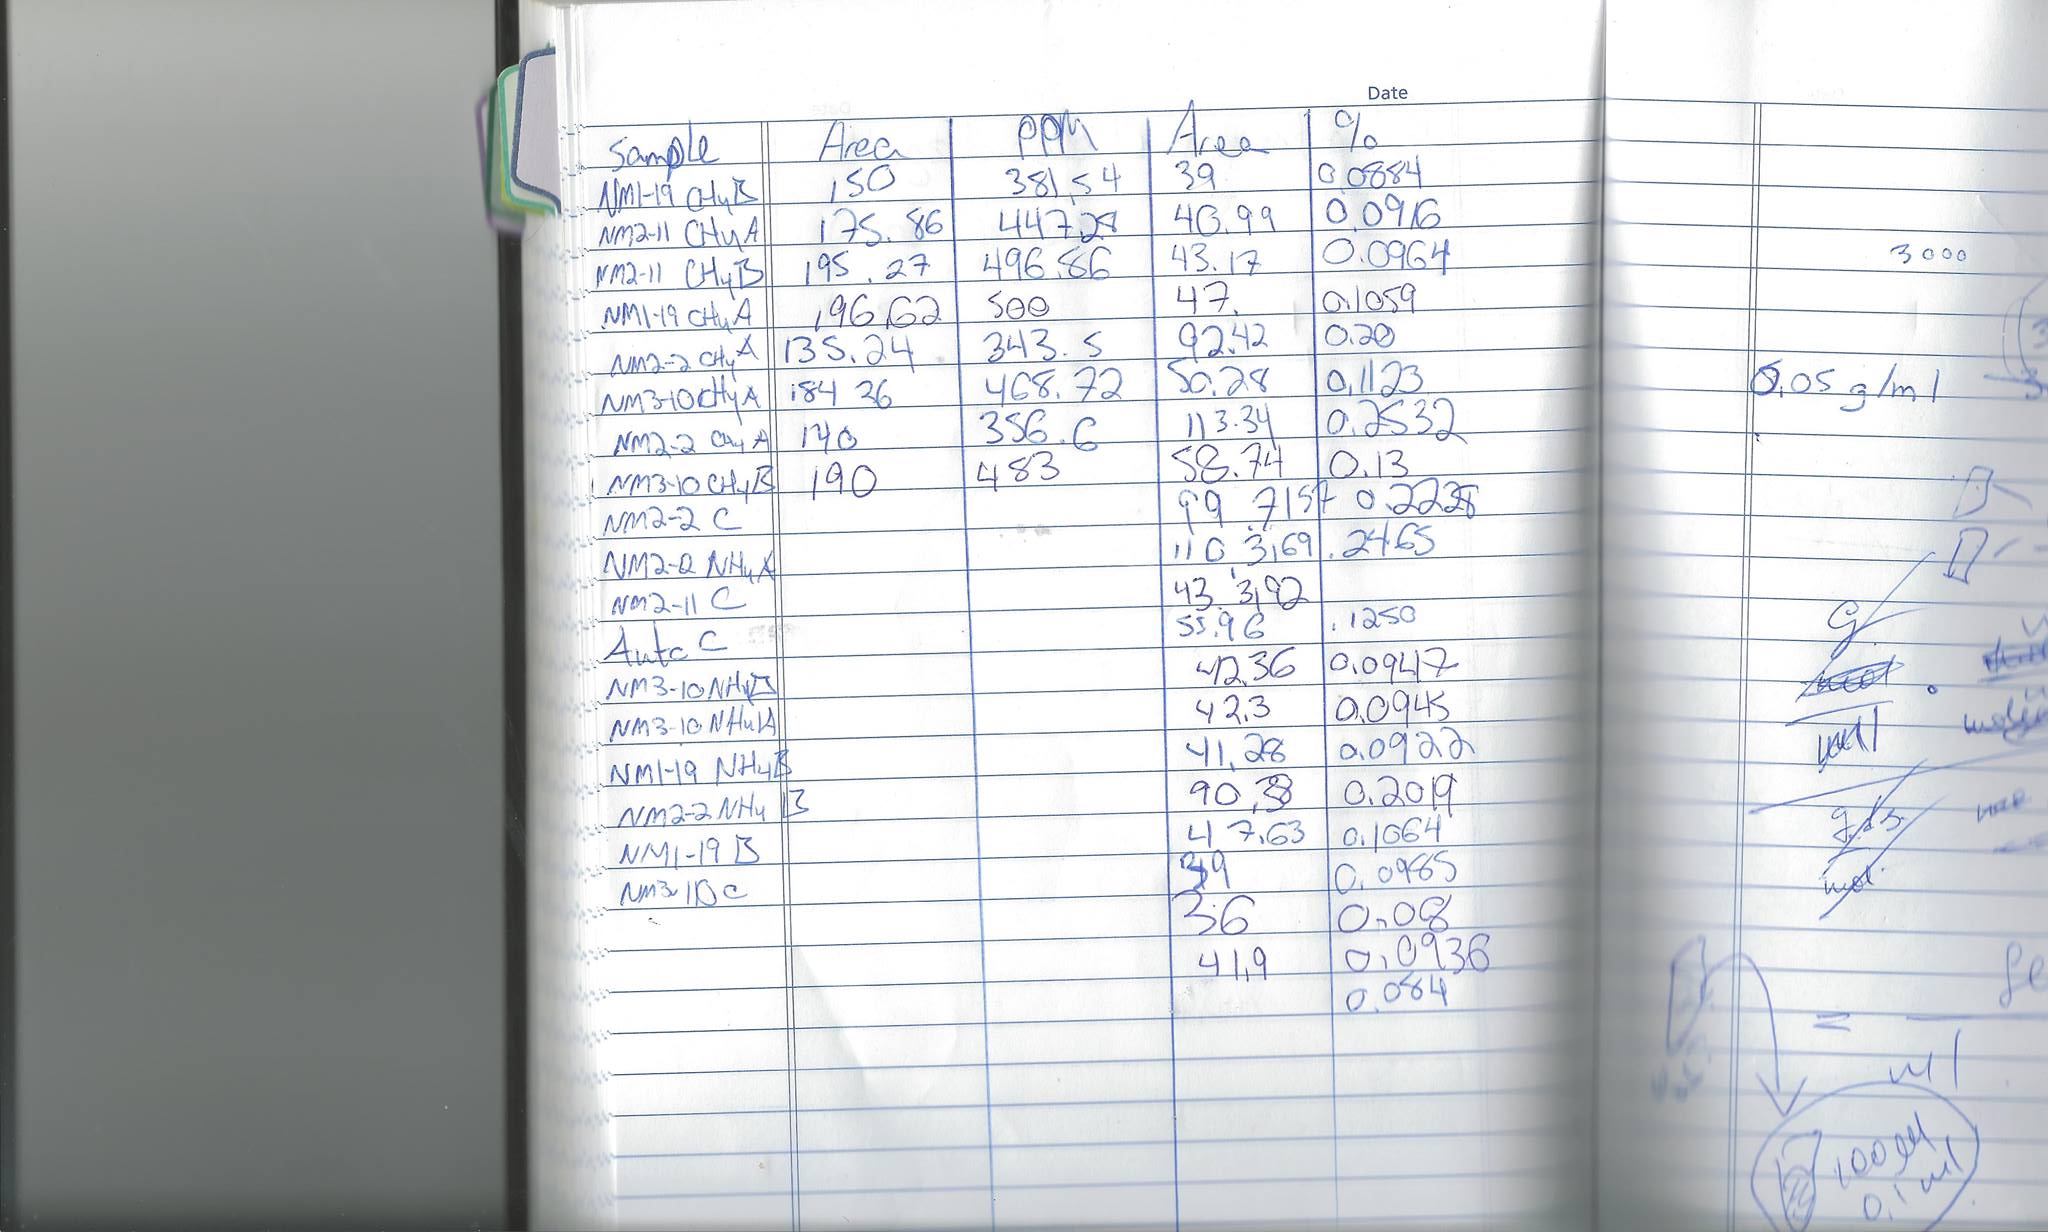 Date
Sample Area PPM Area %
NM1-19 CH4B 150 381,54 39 0.0884
NM2-11 CH4A 175.86 447.28 40.99 0.0916
NM2-11 CH4B 195.27 496.86 43.17 0.0964
NM1-19 CH4A 196,62 500 47. 0.1059
NM2-2 CH4A 135.24 343.5 92.42 0.20
NM3-10 CH4A 184 26 468.72 50.28 0.1123
NM2-2 CH4A 140 356.6 113.34 0.2532
NM3-10 CH4B 190 483 58.74 0.13
NM2-2 C 99.7157 0.2228
NM2-2 NH4A 110 3,169 .2465
NM2-11 C 43 3,92
Auto C 55.96 .1250
NM3-10 NH4B 42.36 0.0947
NM3-10 NH4A 42.3 0.0945
NM1-19 NH4B 41,28 0.0922
NM2-2 NH4 B 90,38 0.2019
NM1-19 B 47.63 0.1064
NM3-10 C 39 0.0985
36 0.08
41,9 0.0936
0.084
3000
0.05 g/ml
G
ml
=
ml
100 µl
0.1 ml